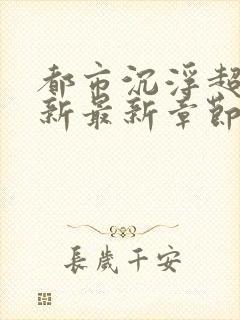 都市沉浮超
新最新章節
長歲千安